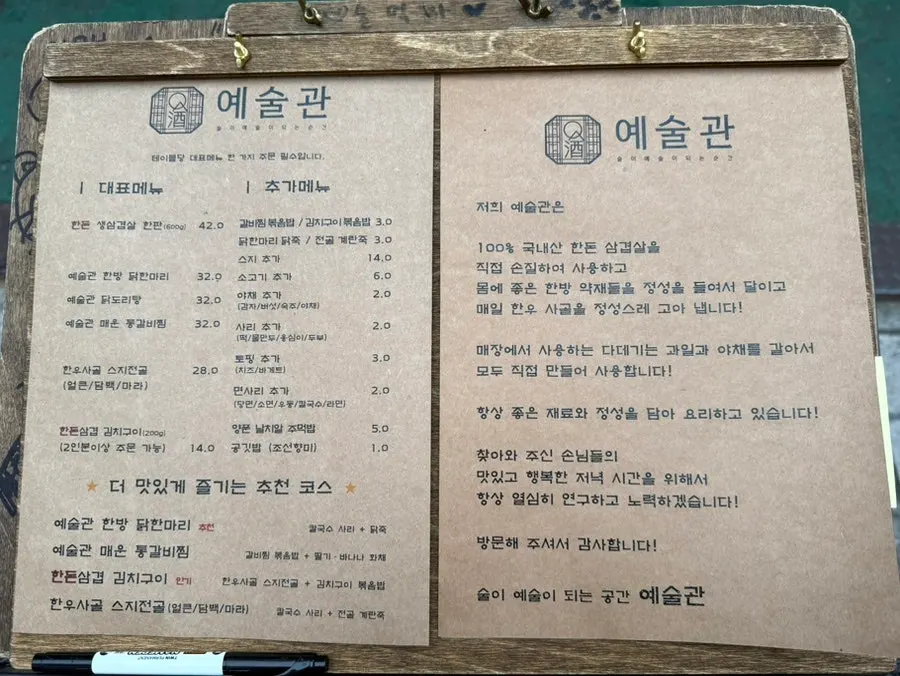 예술관
술이예술이되는순간
테이블당 대표메뉴 한 가지 주문 필수입니다.
ㅣ 대표메뉴
한돈 생삼겹살 한판(600g) 42.0
예술관 한방 닭한마리 32.0
예술관 닭도리탕 32.0
예술관 매운 통갈비찜 32.0
한우사골 스지전골 28.0
(얼큰/담백/마라)
한돈삼겹 김치구이(200g)
(2인분이상 주문 가능) 14.0
ㅣ 추가메뉴
갈비찜볶음밥 / 김치구이볶음밥 3.0
닭한마리 닭죽 / 전골 계란죽 3.0
스지 추가 14.0
소고기 추가 6.0
야채 추가 2.0
(감자/버섯/숙주/야채)
사리 추가 2.0
(떡/물만두/옹심이/두부)
토핑 추가 3.0
(치즈/바게트)
면사리 추가 2.0
(당면/소면/우동/칼국수/라면)
양푼 날치알 주먹밥 5.0
공깃밥 (조선향미) 1.0
★ 더 맛있게 즐기는 추천 코스 ★
예술관 한방 닭한마리 추천 칼국수 사리 + 닭죽
예술관 매운 통갈비찜 갈비찜 볶음밥 + 딸기·바나나 화채
한돈삼겹 김치구이 인기 한우사골 스지전골 + 김치구이 볶음밥
한우사골 스지전골(얼큰/담백/마라) 칼국수 사리 + 전골 계란죽
예술관
술이예술이되는순간
저희 예술관은
100% 국내산 한돈 삼겹살을
직접 손질하여 사용하고
몸에 좋은 한방 약재들을 정성을 들여서 달이고
매일 한우 사골을 정성스레 고아 냅니다!
매장에서 사용하는 다데기는 과일과 야채를 갈아서
모두 직접 만들어 사용합니다!
항상 좋은 재료와 정성을 담아 요리하고 있습니다!
찾아와 주신 손님들의
맛있고 행복한 저녁 시간을 위해서
항상 열심히 연구하고 노력하겠습니다!
방문해 주셔서 감사합니다!
술이 예술이 되는 공간 예술관